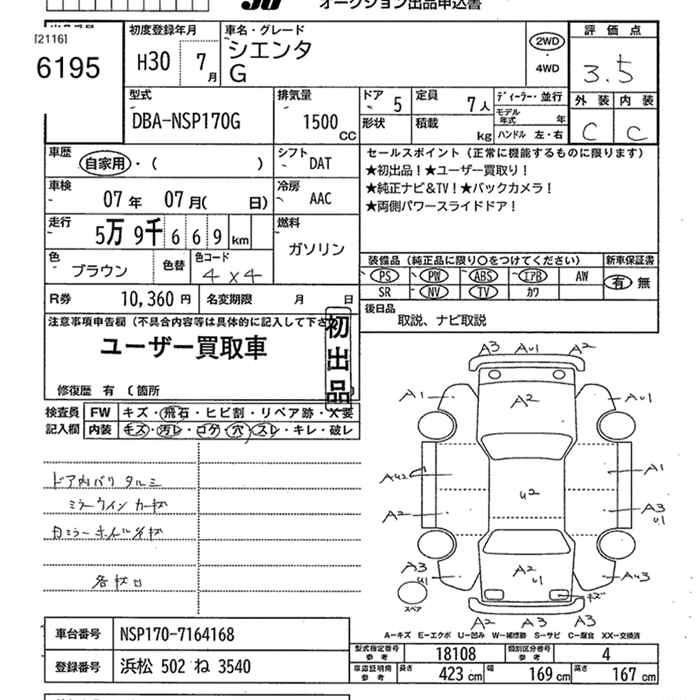 オークション出品申込書
[2116]
6195
初度登録年月
H30 7月
車名・グレード
シエンタ
G
2WD
4WD
評価点
3.5
外装 内装
C C
型式
DBA-NSP170G
排気量
1500 CC
ドア 5
定員 7人
形状
積載 kg
ディーラー・並行
モデル年式 年
ハンドル 左・右
車歴
自家用・( )
シフト DAT
車検
07年 07月( 日)
冷房 AAC
走行
5万9千669km
燃料
ガソリン
色
ブラウン
色替
色コード
4×4
R券 10,360円
名変期限 月 日
セールスポイント(正常に機能するものに限ります)
★初出品!★ユーザー買取り!
★純正ナビ&TV!★バックカメラ!
★両側パワースライドドア!
装備品(純正品に限り○をつけてください)
新車保証書
PS PW ABS エアB AW
有 無
SR NV TV カワ
後日品
取説、ナビ取説
注意事項申告欄(不具合内容等は具体的に記入して下さ
ユーザー買取車
初出品
修復歴 有 (箇所
検査員
記入欄
FW キズ・飛石・ヒビ割・リペア跡・X要
内装 キズ・汚レ・コゲ・穴・スレ・キレ・破レ
ミラーウインカー
A3 AU1 A2
A1 A2 AU1
A1
A2 U2 A3
U1
A3
U1 A2
U1 AU3
キズ
スペア
A2 A3 A3
A-キズ E-エクボ U-凹み W-補修跡 S-サビ C-腐食 XX-交換済
車台番号 NSP170-7164168
登録番号 浜松 502 ね 3540
型式指定番号
参考
18108
類別区分番号
参考
4
車庫証明用
参考
長さ 423 cm
幅 169 cm
高さ 167 cm